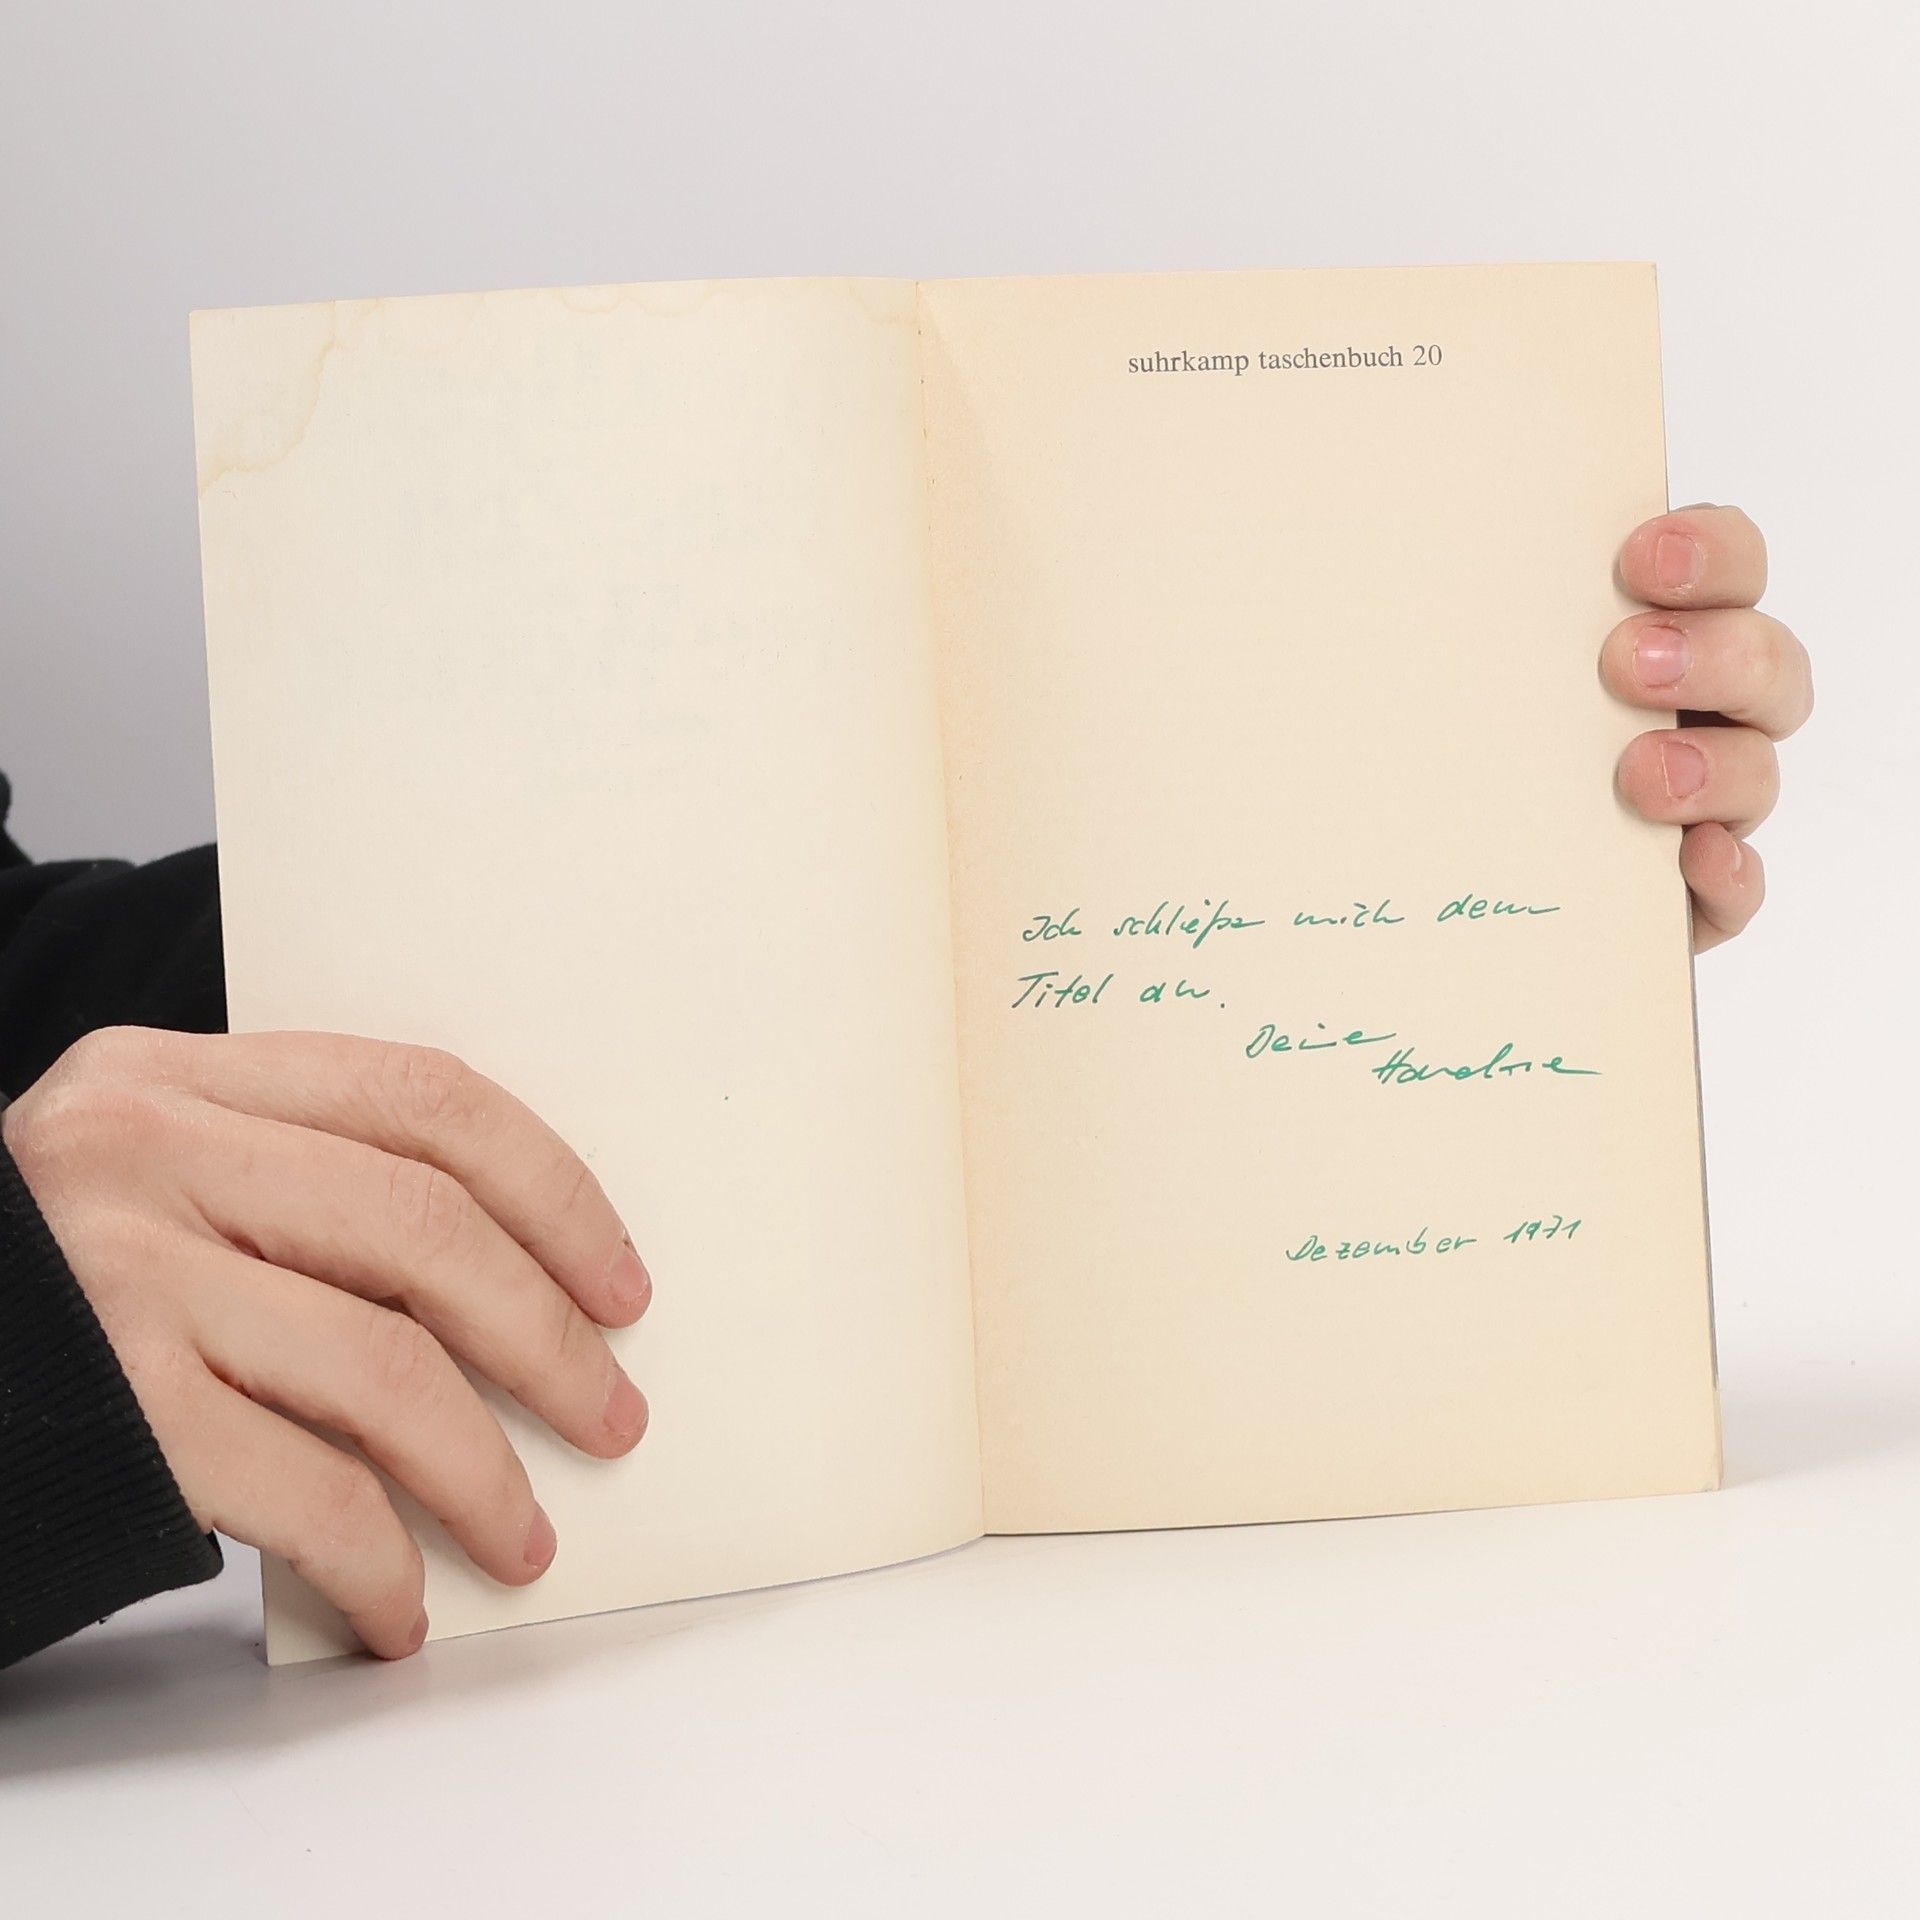 suhrkamp taschenbuch 20
Ich schließe mich dem
Titel an.
Deine
Dezember 1971